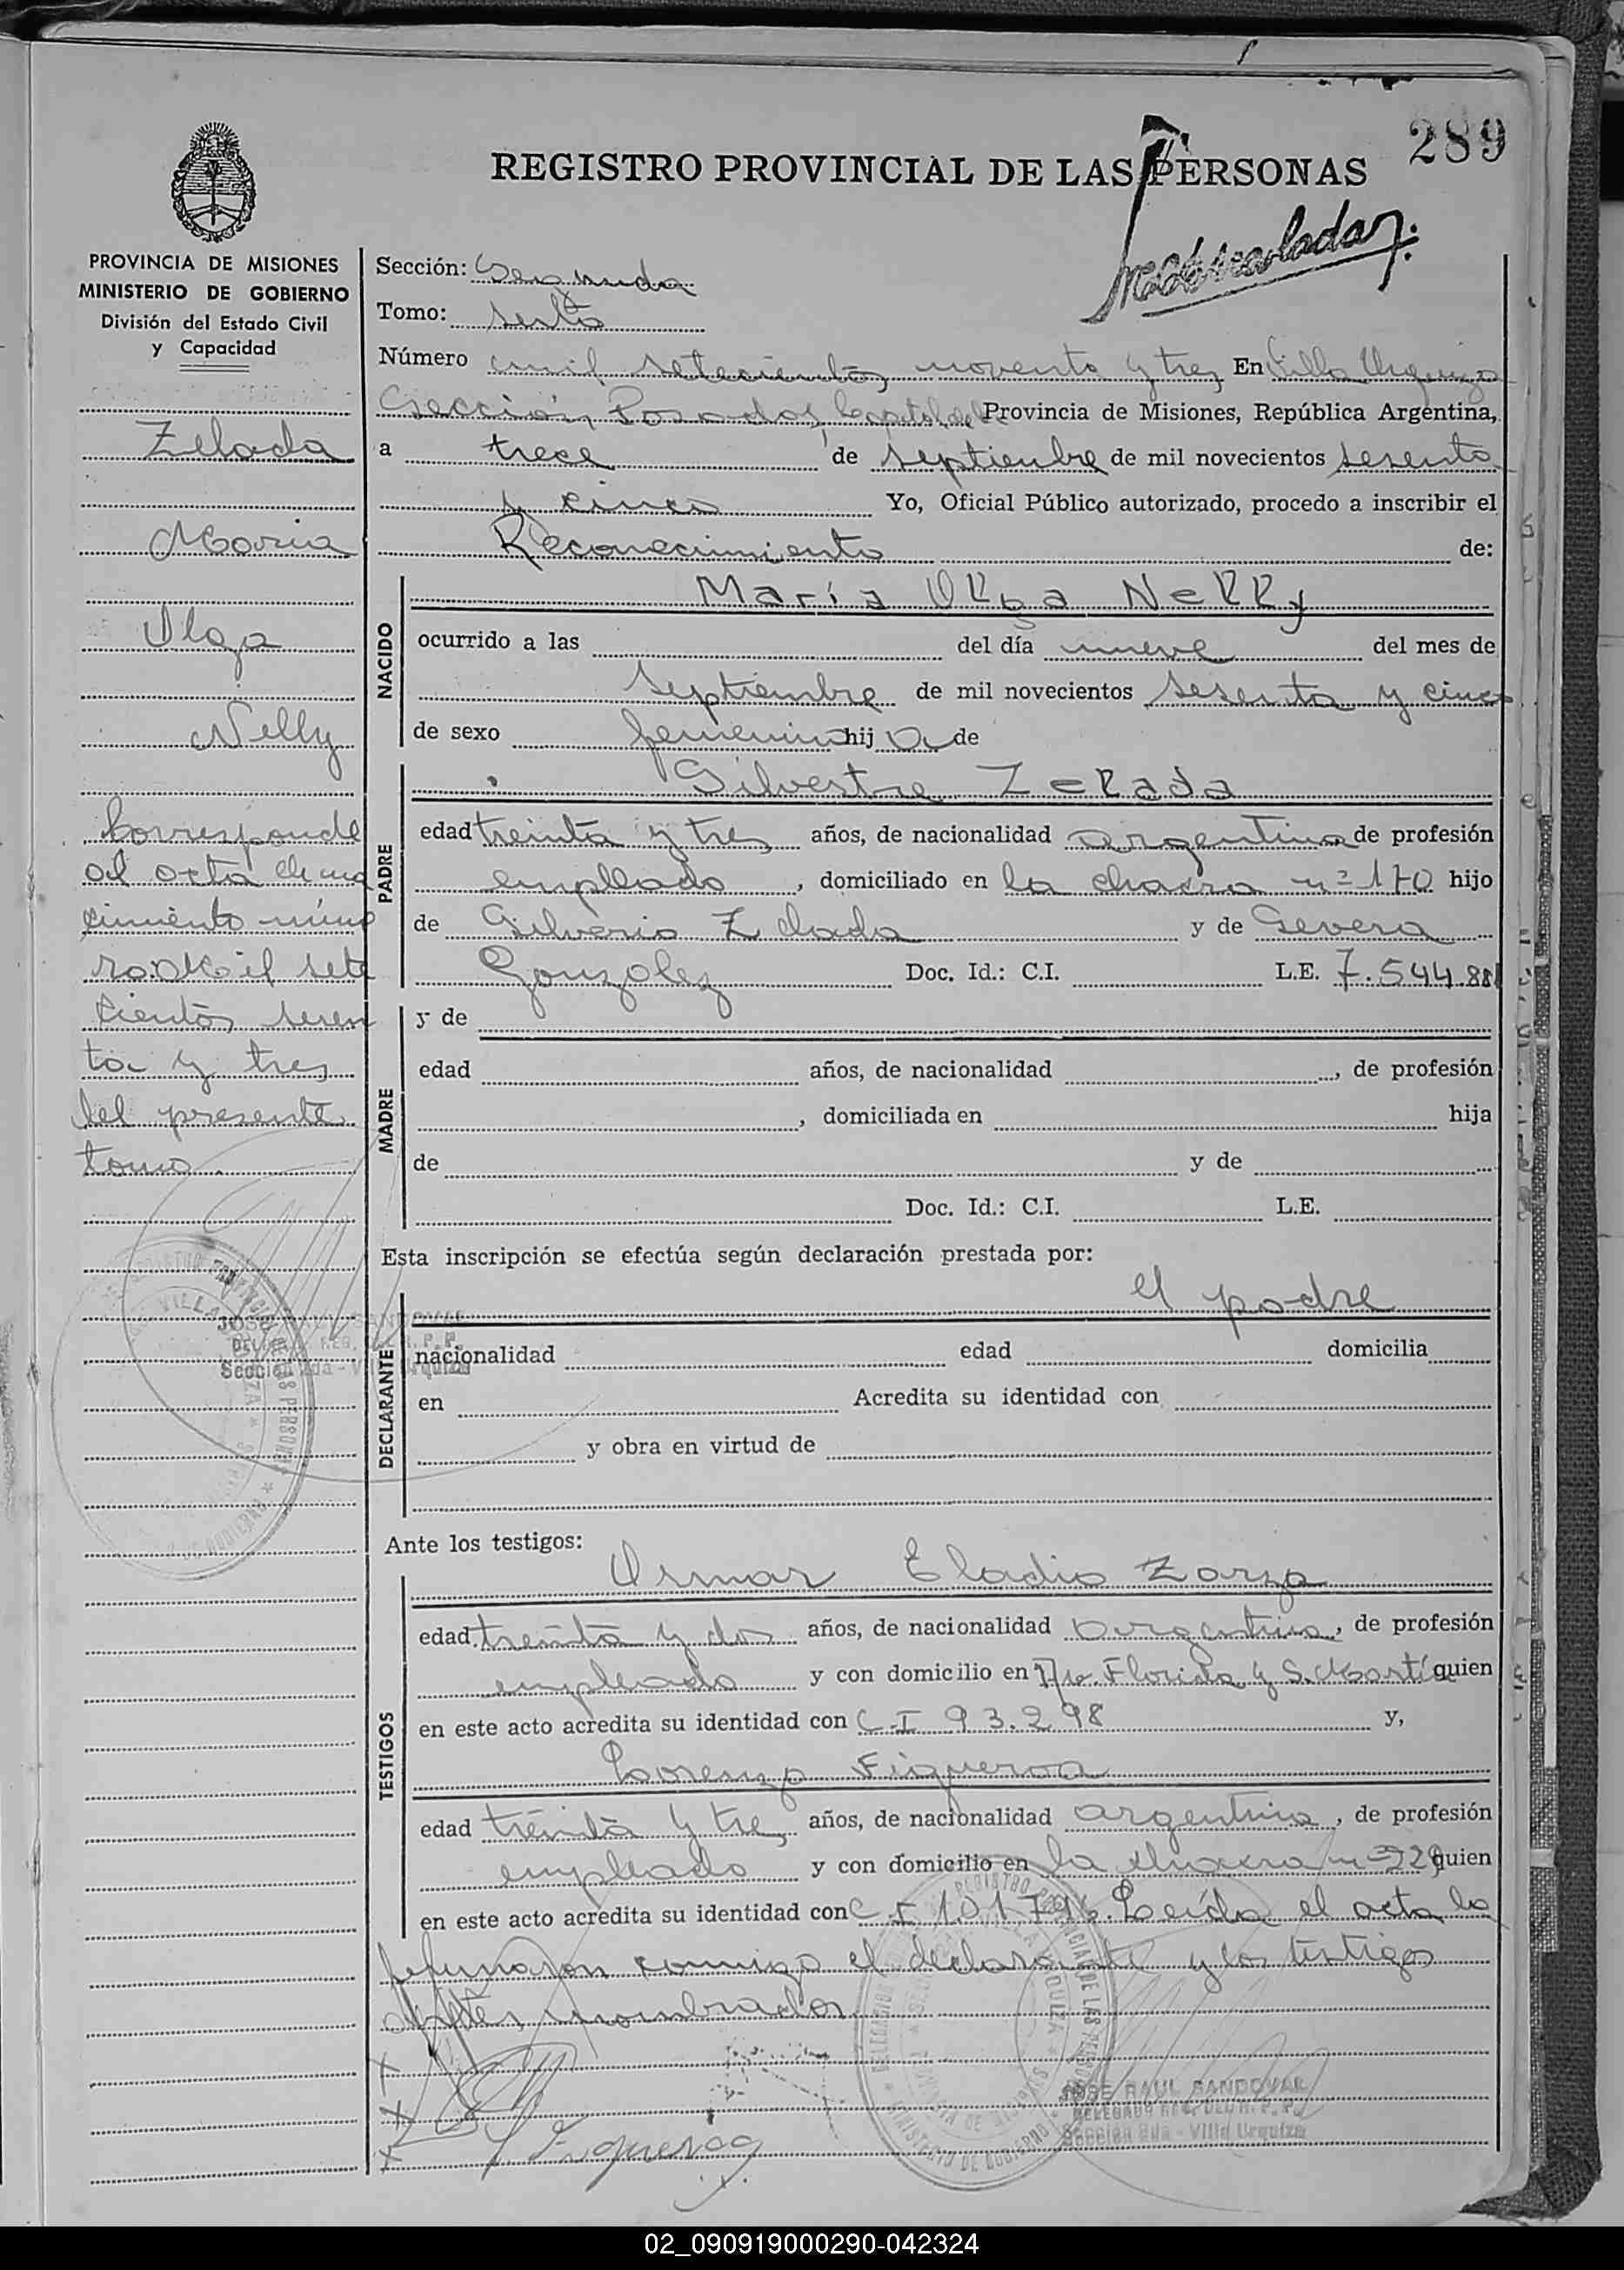 289
REGISTRO PROVINCIAL DE LAS PERSONAS
PROVINCIA DE MISIONES
MINISTERIO DE GOBIERNO
División del Estado Civil
y Capacidad
Zelada
Maria
Olga
Nelly
Corresponde
al acta de na
cimiento núme
ro Mil sete
cientos
ta y tres
del presente
tomo.
Sección: Segunda
Tomo: sexto
Número mil setecientos noventa y tres En Villa Urquiza
Sección Posadas Capital de Provincia de Misiones, República Argentina,
a trece de septiembre de mil novecientos sesenta
y cinco Yo, Oficial Público autorizado, procedo a inscribir el
Reconocimiento de:
NACIDO
María Olga Nelly
ocurrido a las del día nueve del mes de
septiembre de mil novecientos sesenta y cinco
de sexo femenino hij a de
PADRE
Silvestre Zelada
edad treinta y tres años, de nacionalidad argentina de profesión
empleado, domiciliado en la chacra nº 170 hijo
de Silverio Zelada y de Severa
Gonzalez Doc. Id.: C.I. L.E. 7.544.88
MADRE
y de
edad años, de nacionalidad , de profesión
, domiciliada en hija
de y de
Doc. Id.: C.I. L.E.
Esta inscripción se efectúa según declaración prestada por:
DECLARANTE
el padre
nacionalidad edad domicilia
en Acredita su identidad con
y obra en virtud de
Ante los testigos:
TESTIGOS
Osmar Eladio Zarza
edad treinta y dos años, de nacionalidad argentina, de profesión
empleado y con domicilio en Florida y S. Martí quien
en este acto acredita su identidad con C.I 93.298 y,
Lorenzo Figueroa
edad treinta y tre años, de nacionalidad argentina, de profesión
empleado y con domicilio en la chacra nº 229 quien
en este acto acredita su identidad con C.I 101.796. Leída el acta la
firmaron conmigo el declarante y los testigos
antes nombrados
Figueroa
JOSE RAUL SANDOVAL
Sección 2da - Villa Urquiza
02_090919000290-042324